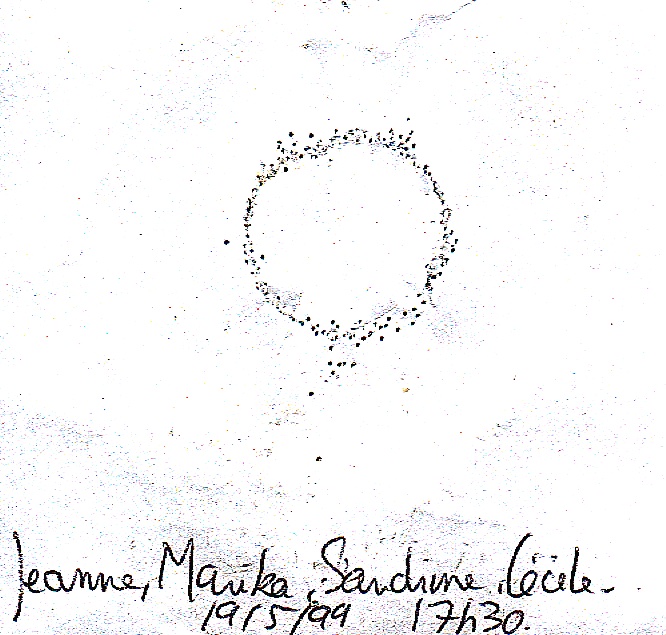 Jeanne, Marika, Sandrine, Cécile.
19/5/99 17h30.